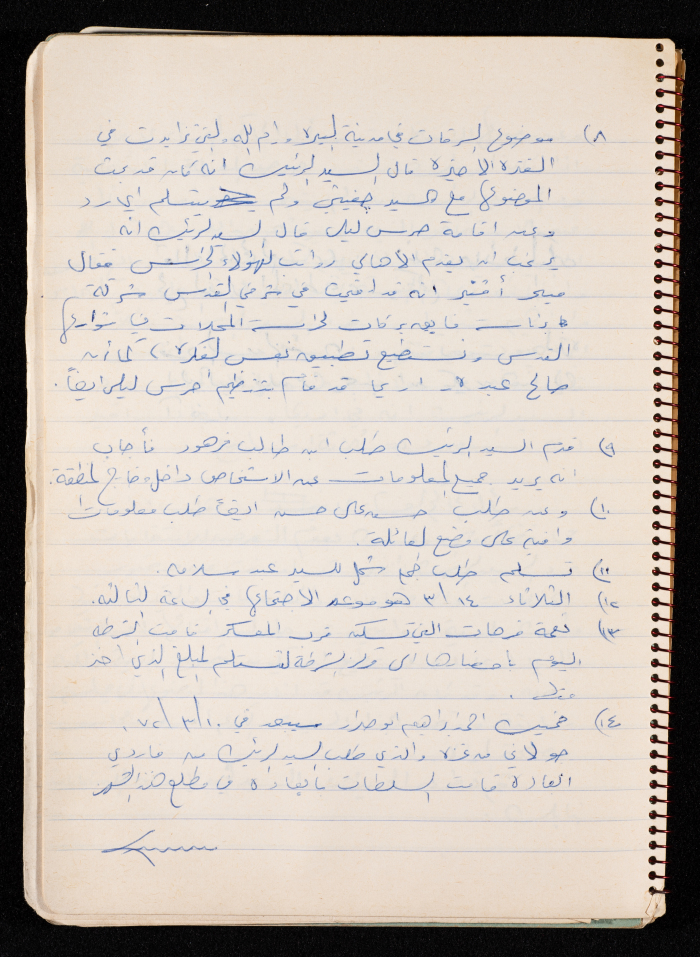 ٨) موضوع السرقات في مدينة البيره ورام الله والتي تزايدت في
الفتره الاخيرة قال السيد الرئيس انه كان قد بحث
الموضوع مع السيد ولم يتسلم اي رد
وعن اقامة حرس ليلي قال السيد الرئيس انه
يرغب ان يقدم الأهالي رواتب لهؤلاء الحراس فقال
ميجر انه قد اقيمت في شرقي القدس شركة
لحراسة المحلات في شوارع
القدس ونستطيع تطبيق نفس الفكرة، كما أن
صالح عبده اريحا قد قام بتنظيم حرس ليلي ايضاً.
٩) قدم السيد الرئيس طلب ابن طالب فرهود فأجاب
انه يريد جميع المعلومات عن الاشخاص داخل وخارج المنطقة.
١٠) وعن طلب حسن علي حسن ايضاً طلب معلومات
وافية على وضع العائلة.
١١) تسلم طلب لم شمل للسيد عبد سلامه.
١٢) الثلاثاء ٣/١٤ هو موعد الاجتماع في الساعة الثالثه.
١٣) نعمة فرحات التي تسكن قرب المعسكر قامت الشرطه
اليوم باحضارها الى مركز الشرطة لتستلم المبلغ الذي اخذ
منها.
١٤) خميس ابراهيم ابو صدار سيبعد في ٧٢/٣/١٠.
جولاني من غزه والذي طلب السيد الرئيس من
العاده قامت السلطات بابعاده في مطلع هذا الشهر